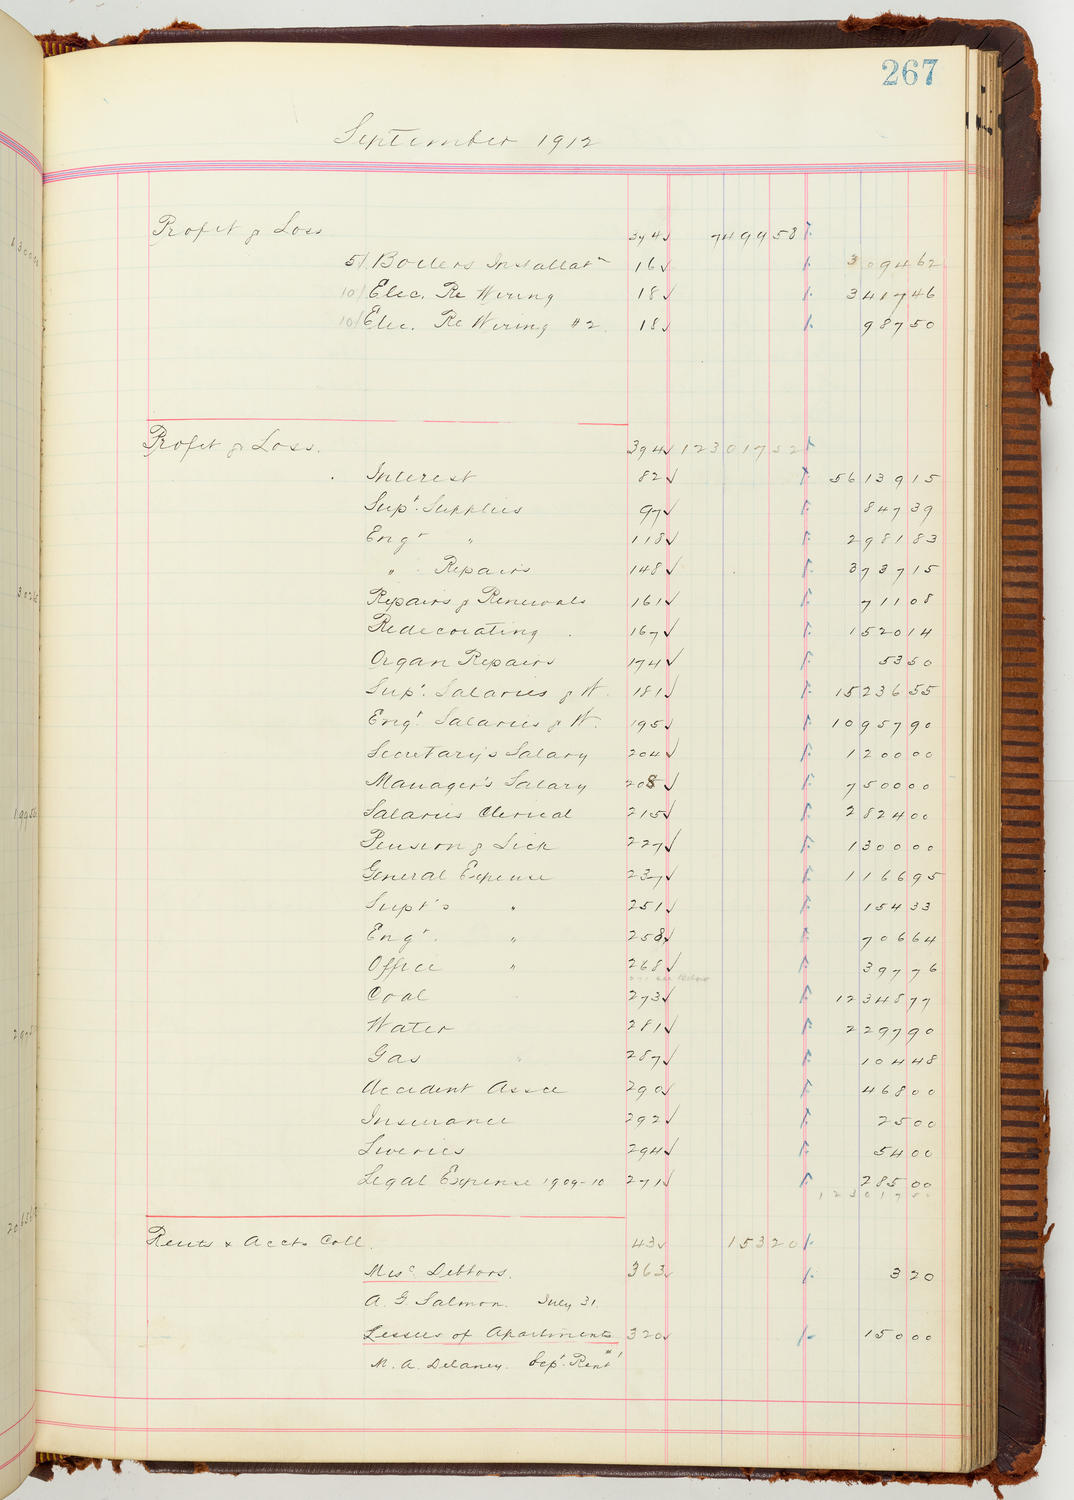 267
September 1912
Profit & Loss 394 749958
5/ Boilers Installatn 16 309462
10/ Elec. Re Wiring 18 341746
10/ Elec. Re Wiring #2 18 98750
Profit & Loss. 394 12301752
Interest 82 5613915
Supt. Supplies 97 84739
Engr " 118 298183
" Repairs 148 373715
Repairs & Renewals 161 71108
Redecorating 167 152014
Organ Repairs 174 5350
Supt. Salaries & W. 181 1523655
Engr. Salaries & W. 195 1095790
Secretary's Salary 204 120000
Manager's Salary 208 750000
Salaries Clerical 215 282400
Pension & Sick 227 130000
General Expense 237 116695
Supt's " 251 15433
Engr. " 258 70664
Office " 268 39776
Coal 273 1234877
Water 281 229790
Gas " 287 10448
Accident Assce 290 46800
Insurance 292 2500
Liveries 294 5400
Legal Expense 1909-10 271 28500
Rents & Accts Coll. 43 15320
Misc. Debtors. 363 320
A. G. Salmon. July 31.
Lessees of Apartments 320 15000
M. A. Delaney. Sept. Rent